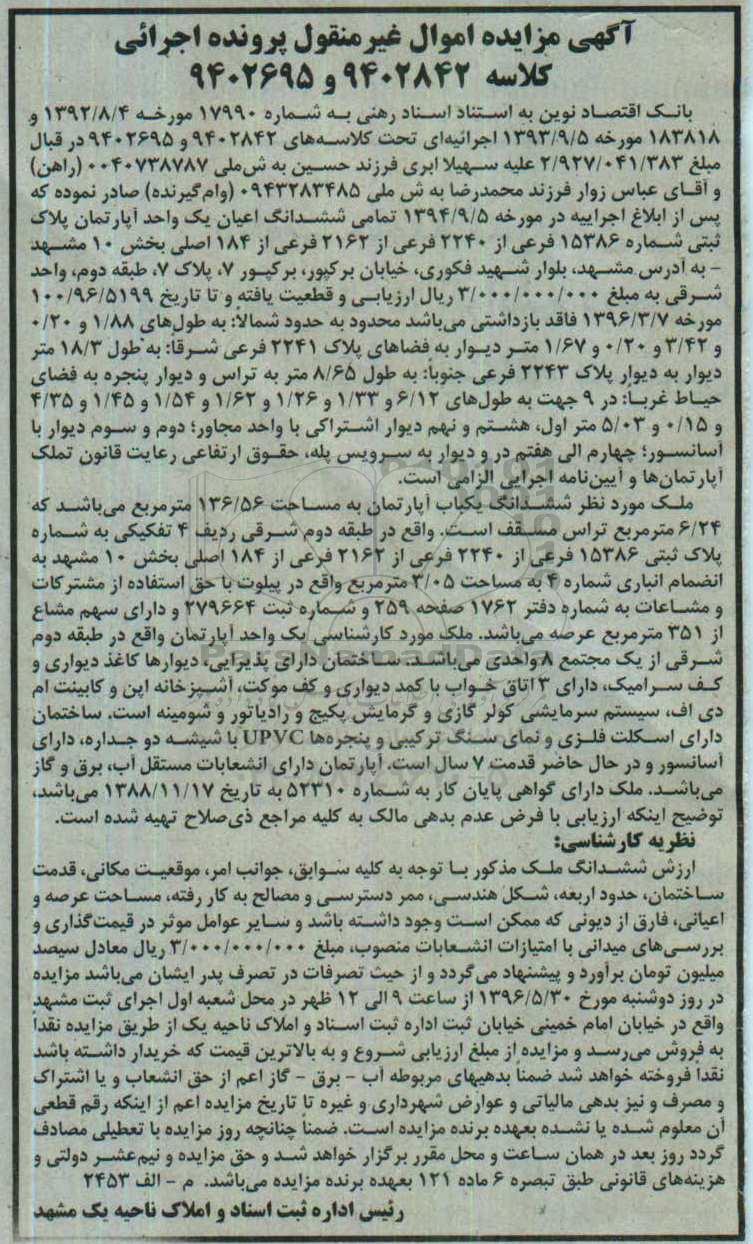 آگهی مزایده اموال غیرمنقول پرونده اجرائی
کلاسه ۹۴۰۲۸۴۲ و ۹۴۰۲۶۹۵
بانک اقتصاد نوین به استناد اسناد رهنی به شماره ۱۷۹۹۰ مورخه ۱۳۹۲/۸/۴ و
۱۸۳۸۱۸ مورخه ۱۳۹۳/۹/۵ اجرائیه‌ای تحت کلاسه‌های ۹۴۰۲۸۴۲ و ۹۴۰۲۶۹۵ در قبال
مبلغ ۲/۹۲۷/۰۴۱/۳۸۳ علیه سهیلا ابری فرزند حسین به ش‌ملی ۰۰۴۰۷۳۸۷۸۷ (راهن)
و آقای عباس زوار فرزند محمدرضا به ش ملی ۰۹۴۳۲۸۳۴۸۵ (وام‌گیرنده) صادر نموده که
پس از ابلاغ اجراییه در مورخه ۱۳۹۴/۹/۵ تمامی ششدانگ اعیان یک واحد آپارتمان پلاک
ثبتی شماره ۱۵۳۸۶ فرعی از ۲۲۴۰ فرعی از ۲۱۶۲ فرعی از ۱۸۴ اصلی بخش ۱۰ مشهد
- به آدرس مشهد، بلوار شهید فکوری، خیابان برکپور، برکپور ۷، پلاک ۷، طبقه دوم، واحد
شرقی به مبلغ ۳/۰۰۰/۰۰۰/۰۰۰ ریال ارزیابی و قطعیت یافته و تا تاریخ ۱۰۰/۹۶/۵۱۹۹
مورخه ۱۳۹۶/۳/۷ فاقد بازداشتی می‌باشد محدود به حدود شمالا: به طول‌های ۱/۸۸ و ۰/۲۰
و ۳/۴۲ و ۰/۲۰ و ۱/۶۷ متر دیوار به فضاهای پلاک ۲۲۴۱ فرعی شرقا: به طول ۱۸/۳ متر
دیوار به دیوار پلاک ۲۲۴۳ فرعی جنوباً: به طول ۸/۶۵ متر به تراس و دیوار پنجره به فضای
حیاط غربا: در ۹ جهت به طول‌های ۶/۱۲ و ۱/۳۳ و ۱/۲۶ و ۱/۶۲ و ۱/۵۴ و ۱/۴۵ و ۴/۳۵
و ۰/۱۵ و ۵/۰۳ متر اول، هشتم و نهم دیوار اشتراکی با واحد مجاور؛ دوم و سوم دیوار با
آسانسور؛ چهارم الی هفتم در و دیوار به سرویس پله، حقوق ارتفاعی رعایت قانون تملک
آپارتمان‌ها و آیین‌نامه اجرایی الزامی است.
ملک مورد نظر ششدانگ یکباب آپارتمان به مساحت ۱۳۶/۵۶ مترمربع می‌باشد که
۶/۲۴ مترمربع تراس مسقف است. واقع در طبقه دوم شرقی ردیف ۴ تفکیکی به شماره
پلاک ثبتی ۱۵۳۸۶ فرعی از ۲۲۴۰ فرعی از ۲۱۶۲ فرعی از ۱۸۴ اصلی بخش ۱۰ مشهد به
انضمام انباری شماره ۴ به مساحت ۳/۰۵ مترمربع واقع در پیلوت با حق استفاده از مشترکات
و مشاعات به شماره دفتر ۱۷۶۲ صفحه ۲۵۹ و شماره ثبت ۲۷۹۶۶۴ و دارای سهم مشاع
از ۳۵۱ مترمربع عرصه می‌باشد. ملک مورد کارشناسی یک واحد آپارتمان واقع در طبقه دوم
شرقی از یک مجتمع ۸ واحدی می‌باشد. ساختمان دارای پذیرایی، دیوارها کاغذ دیواری و
کف سرامیک، دارای ۳ اتاق خواب با کمد دیواری و کف موکت، آشپزخانه اپن و کابینت ام
دی اف، سیستم سرمایشی کولر گازی و گرمایش پکیج و رادیاتور و شومینه است. ساختمان
دارای اسکلت فلزی و نمای سنگ ترکیبی و پنجره‌ها UPVC با شیشه دو جداره، دارای
آسانسور و در حال حاضر قدمت ۷ سال است. آپارتمان دارای انشعابات مستقل آب، برق و گاز
می‌باشد. ملک دارای گواهی پایان کار به شماره ۵۲۳۱۰ به تاریخ ۱۳۸۸/۱۱/۱۷ می‌باشد،
توضیح اینکه ارزیابی با فرض عدم بدهی مالک به کلیه مراجع ذی‌صلاح تهیه شده است.
نظریه کارشناسی:
ارزش ششدانگ ملک مذکور با توجه به کلیه سوابق، جوانب امر، موقعیت مکانی، قدمت
ساختمان، حدود اربعه، شکل هندسی، ممر دسترسی و مصالح به کار رفته، مساحت عرصه و
اعیانی، فارق از دیونی که ممکن است وجود داشته باشد و سایر عوامل موثر در قیمت‌گذاری و
بررسی‌های میدانی با امتیازات انشعابات منصوب، مبلغ ۳/۰۰۰/۰۰۰/۰۰۰ ریال معادل سیصد
میلیون تومان برآورد و پیشنهاد می‌گردد و از حیث تصرفات در تصرف پدر ایشان می‌باشد مزایده
در روز دوشنبه مورخ ۱۳۹۶/۵/۳۰ از ساعت ۹ الی ۱۲ ظهر در محل شعبه اول اجرای ثبت مشهد
واقع در خیابان امام خمینی خیابان ثبت اداره ثبت اسناد و املاک ناحیه یک از طریق مزایده نقداً
به فروش می‌رسد و مزایده از مبلغ ارزیابی شروع و به بالاترین قیمت که خریدار داشته باشد
نقدا فروخته خواهد شد ضمنا بدهیهای مربوطه آب - برق - گاز اعم از حق انشعاب و یا اشتراک
و مصرف و نیز بدهی مالیاتی و عوارض شهرداری و غیره تا تاریخ مزایده اعم از اینکه رقم قطعی
آن معلوم شده یا نشده بعهده برنده مزایده است. ضمناً چنانچه روز مزایده با تعطیلی مصادف
گردد روز بعد در همان ساعت و محل مقرر برگزار خواهد شد و حق مزایده و نیم‌عشر دولتی و
هزینه‌های قانونی طبق تبصره ۶ ماده ۱۲۱ بعهده برنده مزایده می‌باشد. م - الف ۲۴۵۳
رئیس اداره ثبت اسناد و املاک ناحیه یک مشهد
ParsNamadData